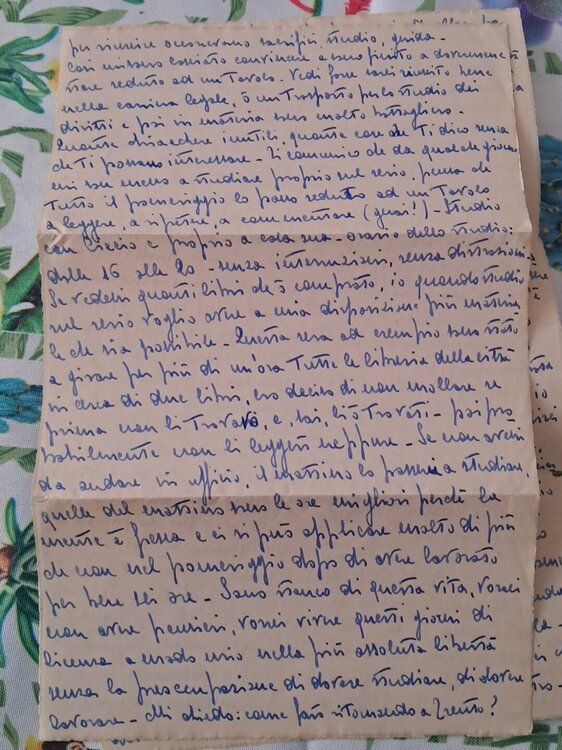 per riuscire occorrevano sacrifici, studio, guida -
stare seduto ad un Tavolo. Vedi forse sarei riuscito bene
nella carriera legale, ò un Trasporto per lo studio dei
diritti e poi in materia sono molto battagliero.
Quante chiacchiere inutili, quante cose che Ti dico senza
che Ti possano interessare - Ti comunico che da qualche giorno
mi son messo a studiare proprio sul serio, pensa che
Tutto il pomeriggio lo passo seduto ad un Tavolo
a leggere, a ripetere, a commentare (guai!) - Studio
con Ciccio e proprio a casa sua - orario dello studio:
dalle 16 alle 20 - senza interruzioni, senza distrazioni -
Se vedessi quanti libri che ò comprato, io quando studio
sul serio voglio avere a mia disposizione più materia
le che sia possibile - Questa sera ad esempio sono stato
a girare per più di un'ora Tutte le librerie della città
in cerca di due libri, ero deciso di non mollare se
prima non li Trovavo, e, sai, li ò Trovati - poi pro
babilmente non li leggerò neppure - Se non avessi
da andare in ufficio, il mattino lo passerei a studiare,
quelle del mattino sono le ore migliori perché la
mente è fresca e ci si può applicare molto di più
che non nel pomeriggio dopo di avere lavorato
per bene sei ore - Sono stanco di questa vita, vorrei
non avere pensieri, vorrei vivere questi giorni di
licenza a modo mio nella più assoluta libertà
senza la preoccupazione di dovere studiare, di dovere
lavorare - Mi chiedo: come farò ritornando a Trento?